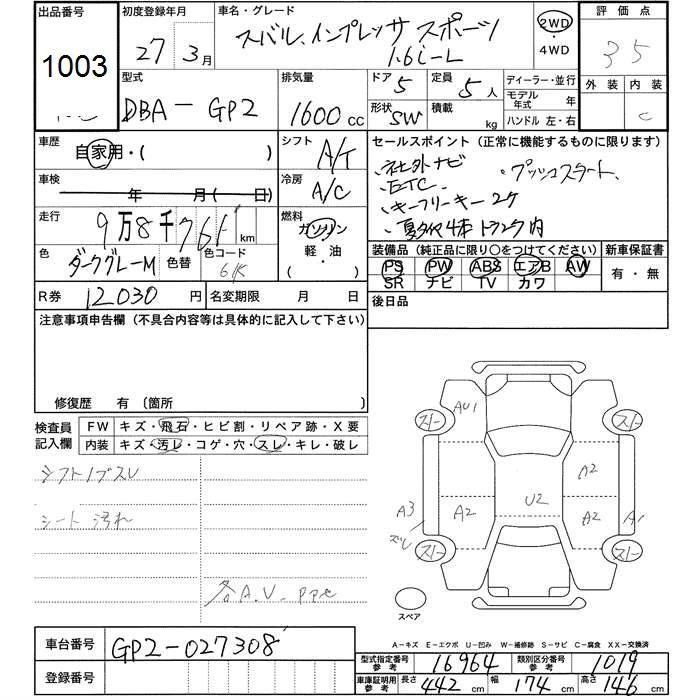 出品番号
1003
初度登録年月
27 3月
車名・グレード
スバル インプレッサ スポーツ
1.6i-L
2WD
・
4WD
評価点
35
外装 内装
C
型式
DBA-GP2
排気量
1600 cc
ドア 5
形状 SW
定員 5人
積載 kg
ディーラー・並行
モデル年式 年
ハンドル 左・右
車歴
自家用・( )
車検
年 月( 日)
走行
9万8千761 km
色
ダークグレーM
色替
色コード
61K
シフト A/T
冷房 A/C
燃料
ガソリン
軽・油
( )
セールスポイント (正常に機能するものに限ります)
・社外ナビ ・プッシュスタート
・ETC
・キーフリーキー2ケ
・夏タイヤ4本トランク内
装備品 (純正品に限り○をつけてください)
PS PW ABS エアB AW
SR ナビ TV カワ
新車保証書
有・無
R券 12030 円
名変期限 月 日
後日品
注意事項申告欄 (不具合内容等は具体的に記入して下さい)
修復歴 有 〔箇所
検査員記入欄
FW キズ・飛石・ヒビ割・リペア跡・X要
内装 キズ・汚レ・コゲ・穴・スレ・キレ・破レ
シフトノブスレ
シート 汚れ
各A.U.
AU1
スノー
スノー
A2
A2
A2
U2
A3
ズレ
A1
スノー
スノー
スペア
A-キズ E-エクボ U-凹み W-補修跡 S-サビ C-腐食 XX-交換済
車台番号 GP2-027308
登録番号
型式指定番号参考 16964
類別区分番号参考 1019
車庫証明用参考 長さ 442 cm 幅 174 cm 高さ 146 cm